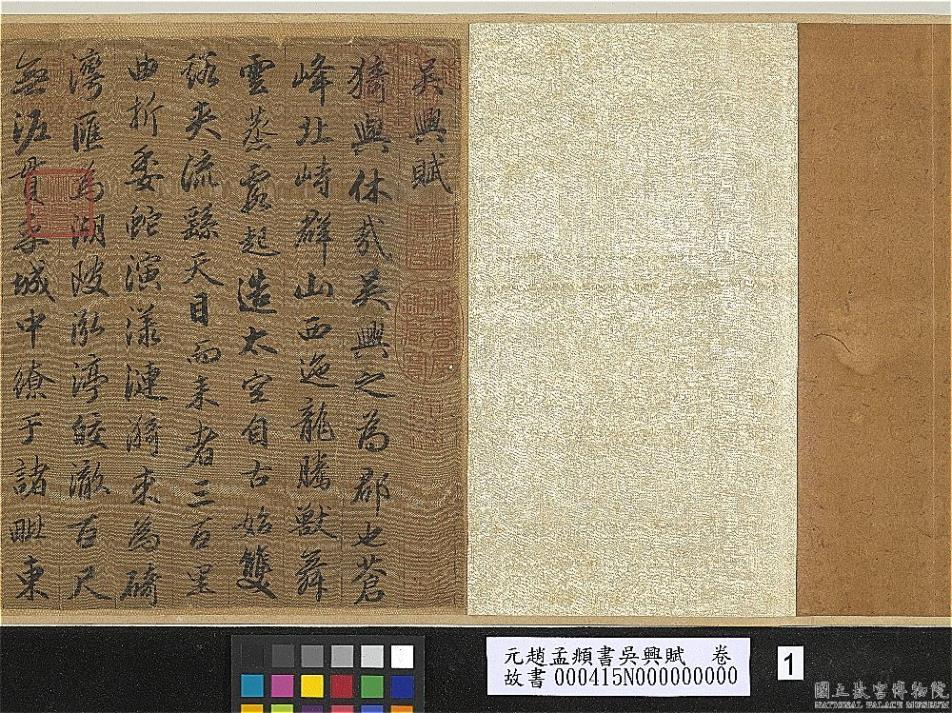 吳興賦
猗與休哉吳興之為郡也蒼
峰北峙群山西迤龍騰獸舞
雲蒸霞起造太空自古始雙
谿夾流繇天日而来者三百里
曲折委蛇演漾漣漪束為碕
灣匯為湖陂泓渟皎澈百尺
無泥貫乎城中繚于諸毗東
元趙孟頫書吳興賦 卷
故書000415N000000000
1
國立故宮博物院
NATIONAL PALACE MUSEUM